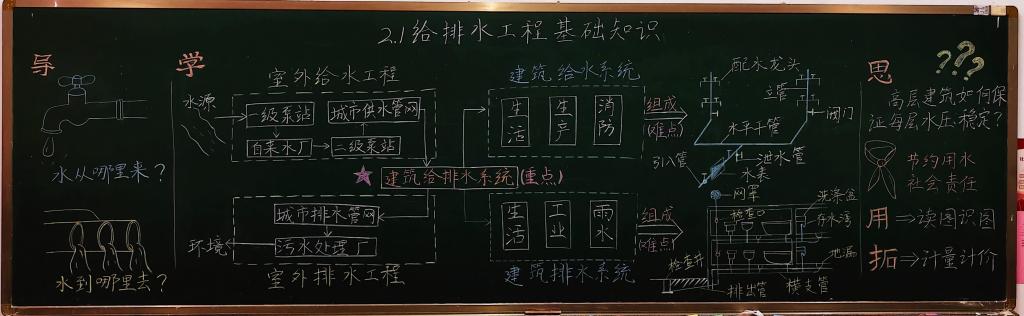 2.1给排水工程基础知识
导
水从哪里来?
水到哪里去?
学
水源
室外给水工程
一级泵站
城市供水管网
自来水厂
二级泵站
建筑给排水系统(重点)
城市排水管网
污水处理厂
环境
室外排水工程
建筑给水系统
生活
生产
消防
组成
(难点)
生活
工业
雨水
建筑排水系统
组成
(难点)
配水龙头
立管
阀门
水平干管
引入管
泄水管
水表
网罩
洗涤盆
检查口
存水湾
检查井
地漏
排出管
横支管
思
???
高层建筑如何保
证每层水压稳定?
节约用水
社会责任
用⇒读图识图
拓⇒计量计价